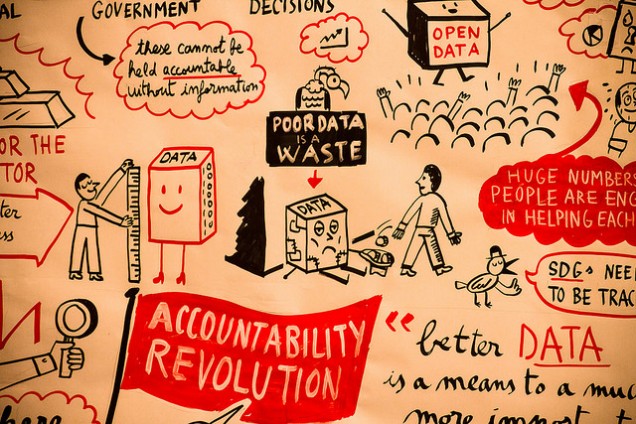 GOVERNMENT DECISIONS
these cannot be
held accountable
without information
OPEN
DATA
POOR DATA
IS A
WASTE
OR THE
TOR
DATA
DATA
HUGE NUMBERS
PEOPLE ARE EN
IN HELPING EACH
SDGs NEE
TO BE TRAC
ACCOUNTABILITY
REVOLUTION
“better DATA
is a means to a muc
more